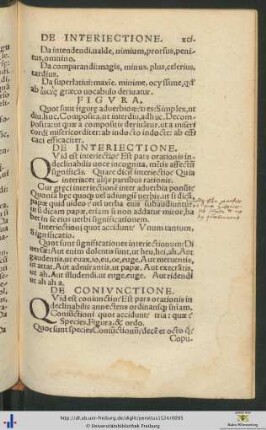 DE INTERIECTIONE. xci.
Da intendendi, ualde, nimium, prorsus, peni-
tus, omnino.
Da comparandi: magis, minus, plus, celerius,
tardius.
Da superlatiui: maxie, minime, ocyssime,
ab græco uocabulo deriuatur.
FIGVRA.
Quot sunt figuræ aduerbiorum: tres: Simplex, ut
diu, huc. Composita, ut interdiu, adhuc. Decom-
posita: ut quæ a compositis deriuatur, ut a miseri
cordi misericorditer: ab inducto inducte: ab effi
caci efficaciter.
DE INTERIECTIONE.
Quid est interiectio? Est pars orationis in-
declinabilis uoce incognita, mētis affectū
significās. Quare dicit interiectio? Quia
interiacet alijs partibus orationis.
Cur græci interiectionē inter aduerbia ponūt?
Quoniā hęc quoque uel adiungit uerbis, ut si dicā,
papæ quid uideo: uel uerba eius subaudiuntur
ut si dicam papæ, etiam si non addatur miror, ha
bet in se ipsius uerbi significationem.
Interiectioni quot accidunt? Vnum tantum,
significatio.
Quot sunt significationes interiectionum? Di
uersæ: Aut enim dolentis sunt, ut heu, hei, ah. Aut
gaudentis, ut euax, io, eu, oe, euge. Aut metuentis,
ut attat. Aut admirantis, ut papæ. Aut execrātis,
ut ah. Aut illudendi, ut enge, euge. Aut ridendi
ut ah ah æ.
DE CONIVNCTIONE.
Quid est coniunctio? Est pars orationis in
declinabilis annectens ordinansque sniam.
Coniūctioni quot accidunt? tria: quæ?
Species, Figura, & ordo.
Quot sunt species coniūctionū? decē et octo
Copu-
http://dl.ub.uni-freiburg.de/diglit/perottus1524/0095
© Universitätsbibliothek Freiburg